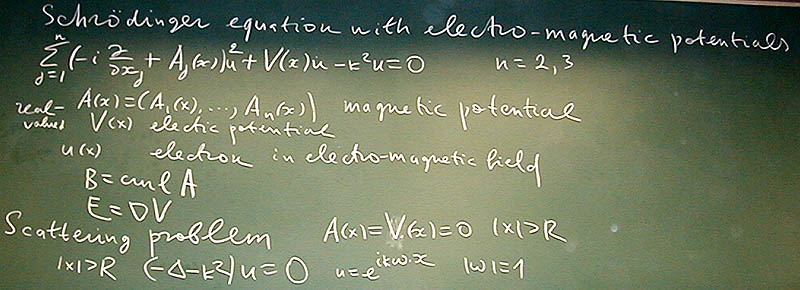 Schrödinger equation with electro-magnetic potentials
∑_{j=1}^{n} (-i ∂/∂x_j + A_j(x))² u + V(x)u - k²u = 0    n = 2, 3
real-valued A(x) = (A_1(x), ..., A_n(x)) magnetic potential
V(x) electic potential
u(x) electron in electro-magnetic field
B = curl A
E = ∇V
Scattering problem A(x) = V(x) = 0 |x|>R
|x|>R (-Δ-k²)u = 0 u = e^{ikω·x} |ω|=1